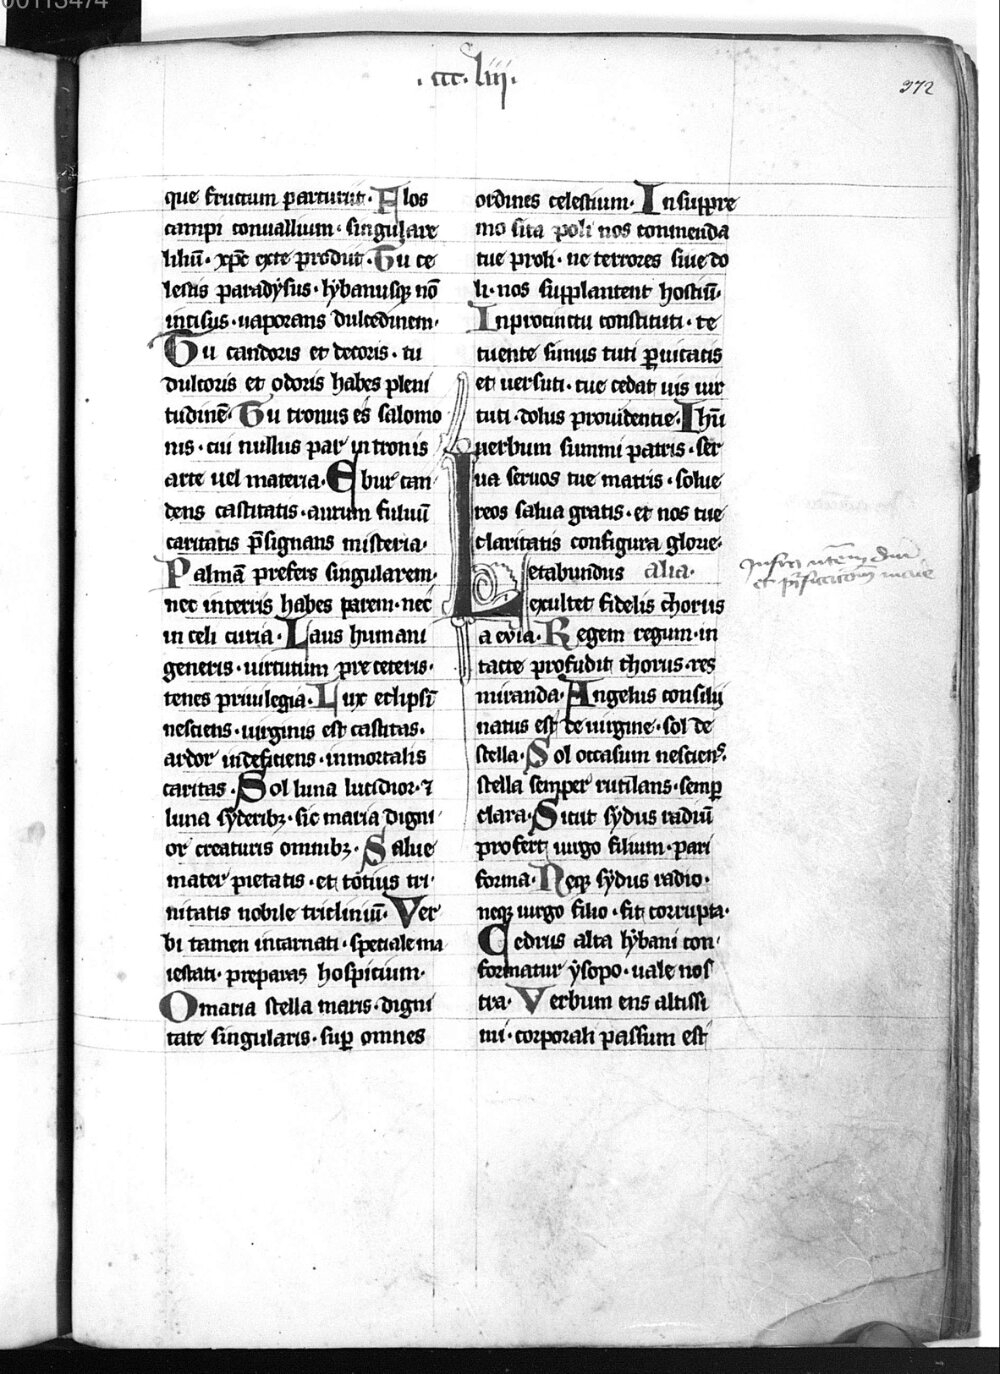 .ccc.liii.
372
que fructum parturiit. Flos
campi conuallium. singulare
liliū. xp̄c exte prodiit. Tu ce
lestis paradysus. lybanusqꝫ nō
incisus. uaporans dulcedinem.
Tu candoris et decoris. tu
dulcoris et odoris habes pleni
tudinē. Tu tronus es salomo
nis. cui nullus par in tronis
arte uel materia. Ebur can
dens castitatis. aurum fuluū
caritatis p̄signans misteria.
Palmā prefers singularem.
nec interris habes parem. nec
in celi curia. Laus humani
generis. uirtutum pre ceteris.
tenes priuilegia. Lux eclipsī
nesciens. uirginis est castitas.
ardor indeficiens. inmortalis
caritas. Sol luna lucidior. ⁊
luna syderibꝫ. sic maria digni
or creaturis omnibꝫ. Salue
mater pietatis. et totius tri
nitatis nobile tricliniū. Ver
bi tamen incarnati. speciale ma
iestati. preparas hospicium.
O maria stella maris. digni
tate singularis. suꝑ omnes
ordines celestium. In supre
mo sita poli nos conmenda
tue proli. ne terrores siue do
li. nos supplantent hostiū.
Inprocinctu constituti. te
tuente simus tuti ꝑuicatis
et uersuti. tue cedat uis uir
tuti. dolus prouidentie. Ihū
uerbum summi patris. ser
ua seruos tue matris. solue
reos salua gratis. et nos tue
claritatis configura glorie.
Letabundus alia.
exultet fidelis chorus
a euia. Regem regum. in
tacte profudit thorus. res
miranda. Angelus consilij
natus est de uirgine. sol de
stella. Sol occasum nesciens.
stella semper rutilans. semꝑ
clara. Sicut sydus radiū
profert uirgo filium. pari
forma. Neqꝫ sydus radio.
neqꝫ uirgo filio. fit corrupta.
Cedrus alta lybani con
formatur ysopo. ualle nos
tra. Verbum ens altissi
mi. corporali passum est